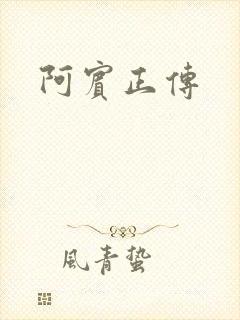 阿賓正傳
風青蟄